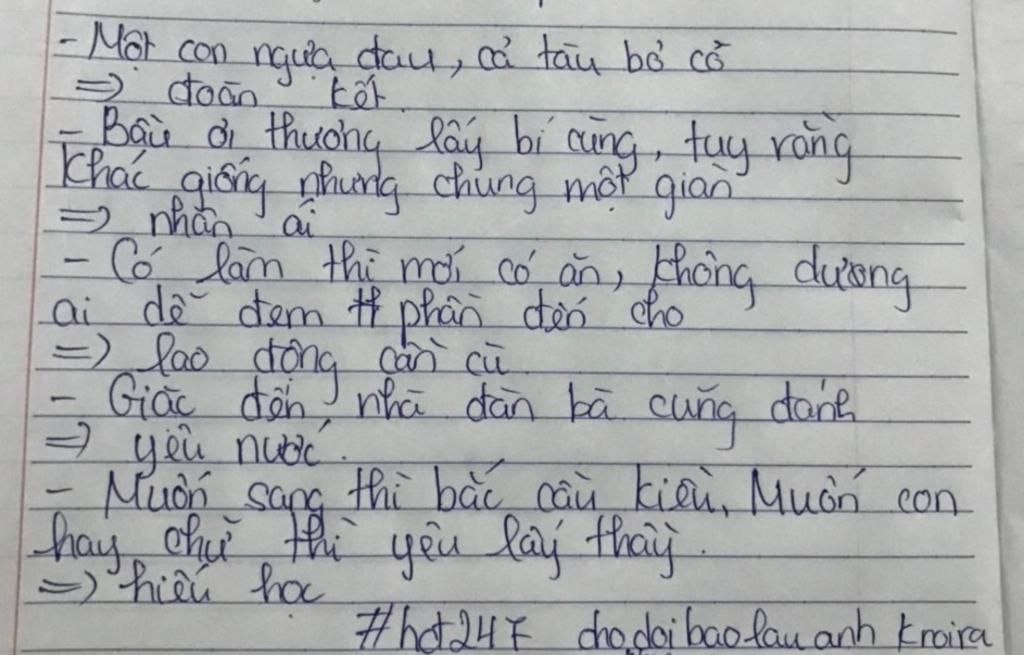 - Một con ngựa đau, cả tàu bỏ cỏ
=> đoàn kết.
- Bầu ơi thương lấy bí cùng, tuy rằng
khác giống nhưng chung một giàn
=> nhân ái
- Có làm thì mới có ăn, không dương
ai dễ đem phần đến cho
=> lao động cần cù
- Giặc đến nhà đàn bà cũng đánh
=> yêu nước.
- Muốn sang thì bắc cầu kiều, Muốn con
hay chữ thì yêu lấy thầy.
=> hiếu học
#hot247 chodoibaolauanh